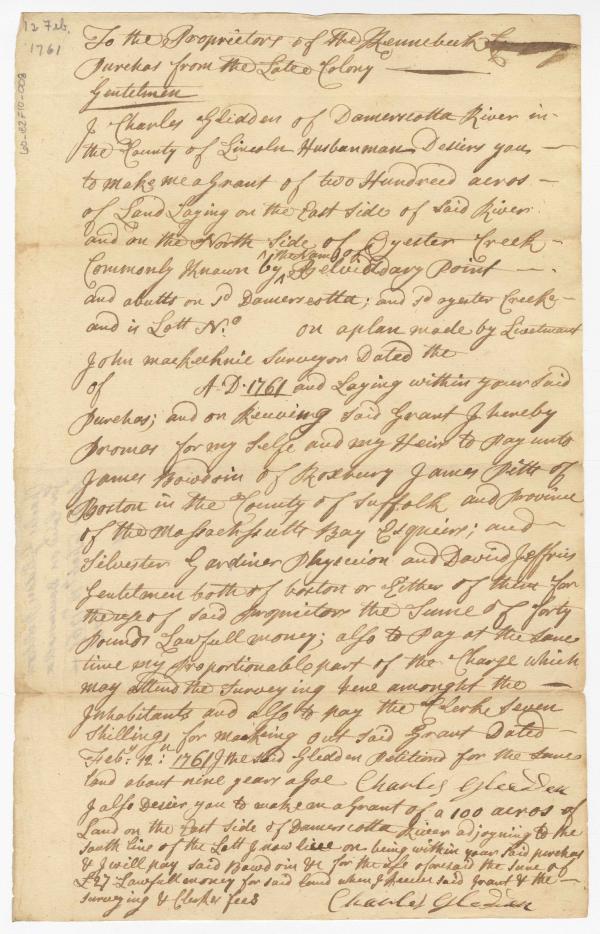 12 Feb.
1761
To the Proprietors of the Kennebeck
Purchas from the Late Colony
Gentelmen
I Charles Glidden of Damerscotta River in
the County of Lincoln Husbanman Desiers you
to make me a Grant of two Hundreed acros
of Land Laying on the East Side of said River
and on the North Side of Oyester Creek
the Name of
Commonly Known by Point
and abutts on sd Damerscotta; and sd oyester Creeke
and is Lott No on a plan made by Lieutmant
John mackechnie Surveyor Dated the
of A D. 1761 and Laying within your Said
Purchas; and on Reuiving said Grant I hereby
Promas for my Selfe and my Heirs to Pay unto
James Bowdoin of Roxbury James Pitts of
Boston in the County of Suffolk and province
of the Massachsutts Bay Esquiers; and
Silvester Gardiner Physecion and David Jeffries
Gentelmen both of boston or Either of them for
the use of said Proprietors the Sume of forty
Pounds Lawfull money; also to Pay at the same
time my proportionable part of the Charge which
may attend the Surveying Vene amonght the
Inhabitants and also to pay the Clerke Seven
Shillings for macking out said Grant Dated
Feby. 12. 1761 I the said Gledden Petitiond for the same
land about nine years agoe Charles Gleedden
I also Desier you to make me a Grant of a 100 acros of
Land on the East Side of Damerscotta River adjoyning to the
South line of the Lott I now live on being within your said purchas
& I will pay said Bowdoin &c for the use aforesaid the sume of
£27 Lawfull money for said land when I said Grant & the
Surveying & Clerkes fees Charles Gledden